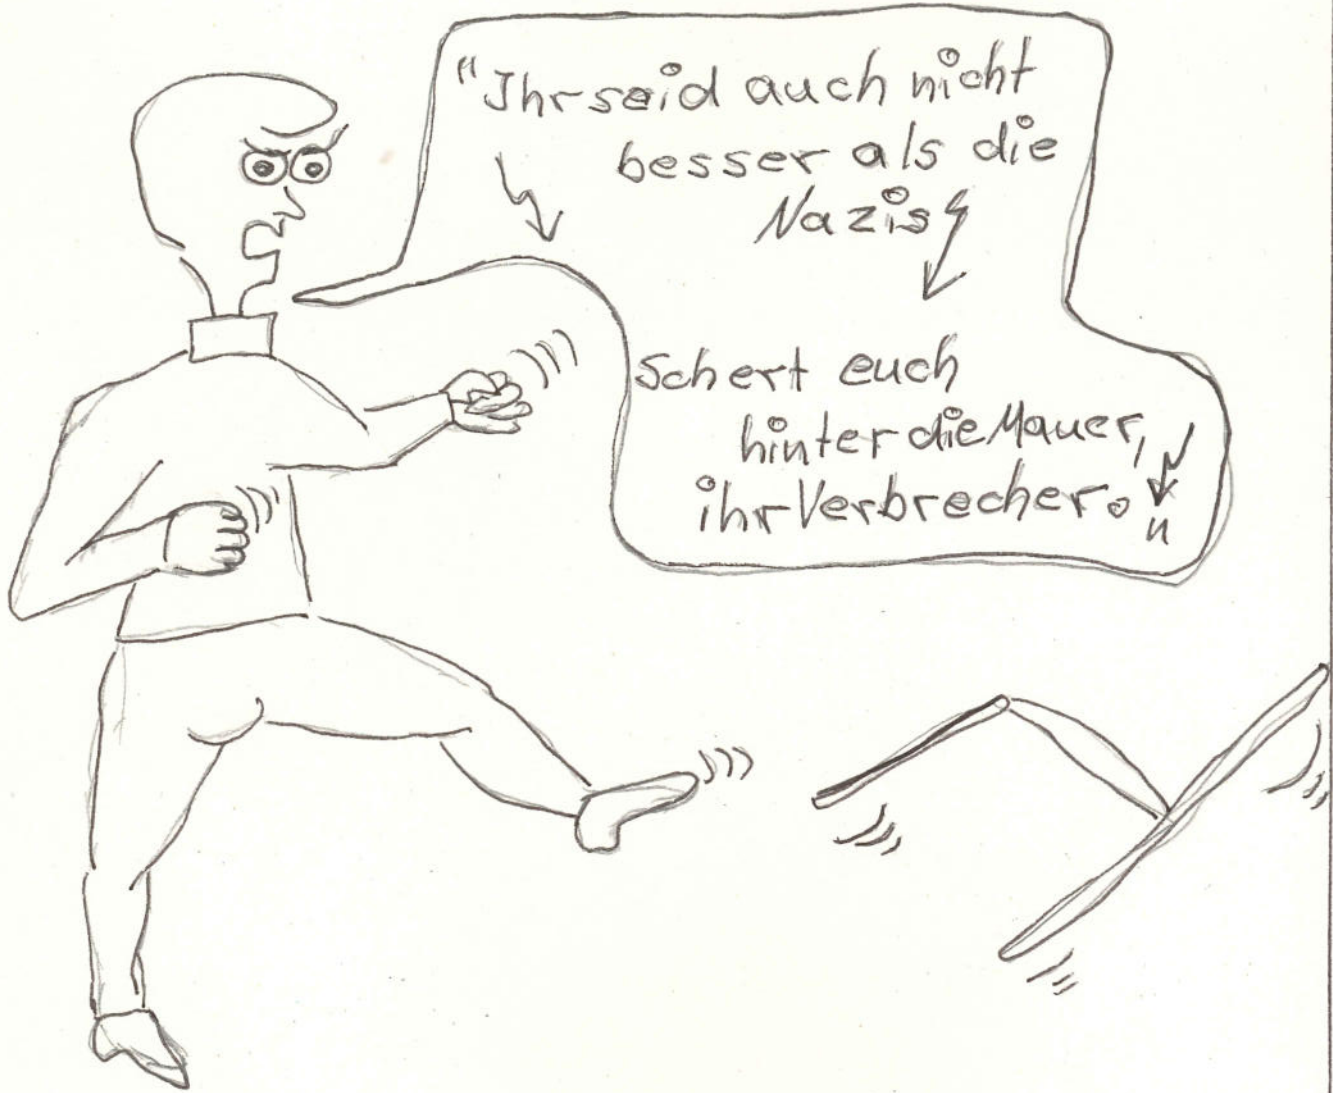 "Ihr seid auch nicht
besser als die
Nazis
Schert euch
hinter die Mauer,
ihr Verbrecher."